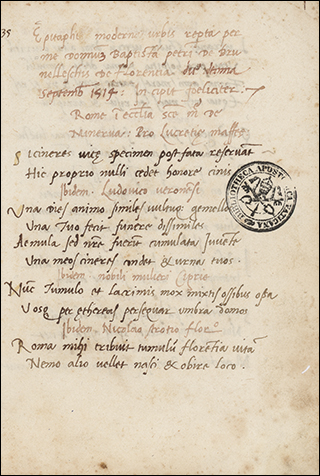 35
Epitaphia modernę urbis repta per
me dominū Baptistā petri de Bru
nelleschis de florentia die
Septembr̄ 1514. Incipit foeliciter.
Rome I ecclia Sce m̄ de
Minerva: Pro Lucretia maffea
Si cineres vitę specimen post fata reservant
Hic proprio nulli cedet honore cinis
Ibidem. Ludovico veronese
Una dies animo similes vultuq gemellos
Una tulit funere dissimiles
Aemula sed nr̄e fuerūt cumulata
Una meos cineres cōdet & urna tuos.
Ibidem nobili mulieri
Nūc tumulo et lacrimis mox mixtis ossibus
Vosq per ethereas persequar umbra domos
Ibidem. Nicolao strotio flor°
Roma mihi tribuit tumulū florentia vitā
Nemo alio vellet nasci & obire loco.
BIBLIOTHECA APOSTOLICA VATICANA